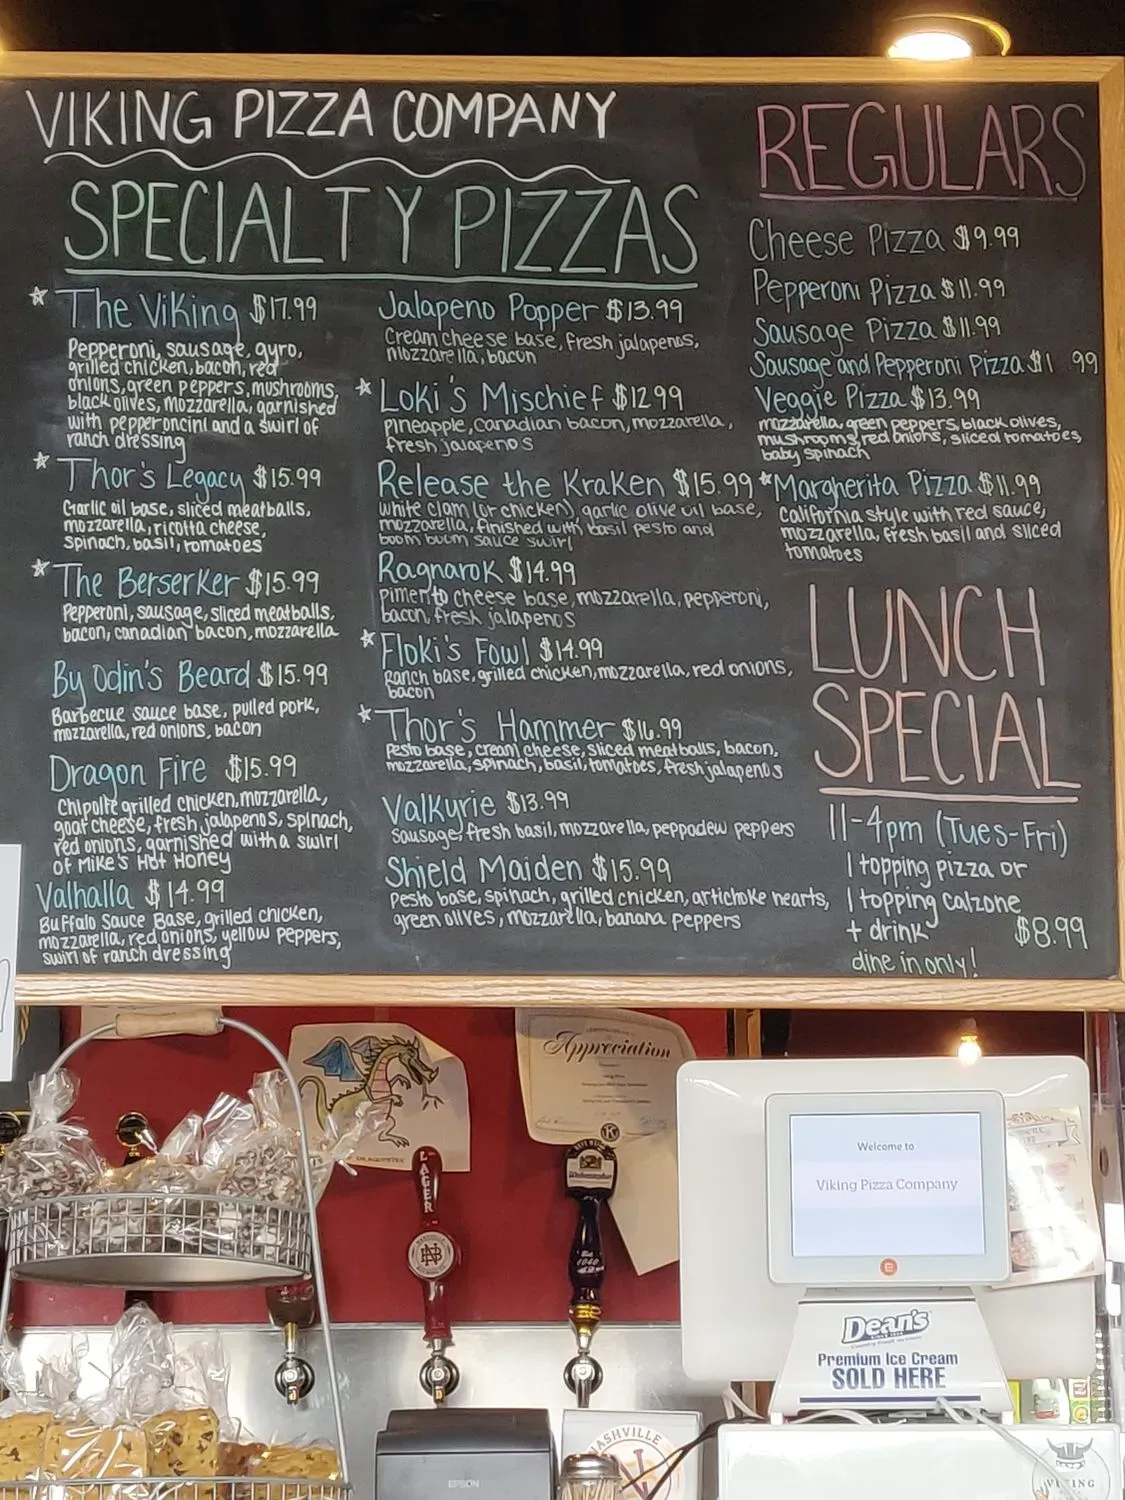 VIKING PIZZA COMPANY
SPECIALTY PIZZAS
☆ The Viking $17.99
Pepperoni, sausage, gyro,
grilled chicken, bacon, red
onions, green peppers, mushrooms,
black olives, mozzarella, garnished
with pepperoncini and a swirl of
ranch dressing
☆ Thor's Legacy $15.99
Garlic oil base, sliced meatballs,
mozzarella, ricotta cheese,
spinach, basil, tomatoes
☆ The Berserker $15.99
Pepperoni, sausage, sliced meatballs,
bacon, canadian bacon, mozzarella
By Odin's Beard $15.99
Barbecue sauce base, pulled pork,
mozzarella, red onions, bacon
Dragon Fire $15.99
Chipolte grilled chicken, mozzarella,
goat cheese, fresh jalapenos, spinach,
red onions, garnished with a swirl
of Mike's Hot Honey
Valhalla $14.99
Buffalo Sauce Base, grilled chicken,
mozzarella, red onions, yellow peppers,
swirl of ranch dressing
Jalapeno Popper $13.99
Cream cheese base, fresh jalapenos,
mozzarella, bacon
☆ Loki's Mischief $12.99
pineapple, canadian bacon, mozzarella,
fresh jalapenos
Release the Kraken $15.99
white clam (or chicken), garlic olive oil base,
mozzarella, finished with basil pesto and
boom boom sauce swirl
Ragnarok $14.99
pimento cheese base, mozzarella, pepperoni,
bacon, fresh jalapenos
☆ Floki's Fowl $14.99
Ranch base, grilled chicken, mozzarella, red onions,
bacon
☆ Thor's Hammer $16.99
Pesto base, cream cheese, sliced meatballs, bacon,
mozzarella, spinach, basil, tomatoes, fresh jalapenos
Valkyrie $13.99
Sausage, fresh basil, mozzarella, peppadew peppers
Shield Maiden $15.99
Pesto base, spinach, grilled chicken, artichoke hearts,
green olives, mozzarella, banana peppers
REGULARS
Cheese Pizza $9.99
Pepperoni Pizza $11.99
Sausage Pizza $11.99
Sausage and Pepperoni Pizza $1 .99
Veggie Pizza $13.99
mozzarella, green peppers, black olives,
mushrooms, red onions, sliced tomatoes,
baby spinach
☆ Margherita Pizza $11.99
California style with red sauce,
mozzarella, fresh basil and sliced
tomatoes
LUNCH
SPECIAL
11-4pm (Tues-Fri)
1 topping pizza or
1 topping calzone
+ drink $8.99
dine in only!
Appreciation
LAGER
Welcome to
Viking Pizza Company
Dean's
Premium Ice Cream
SOLD HERE
EPSON
NASHVILLE
VIKING